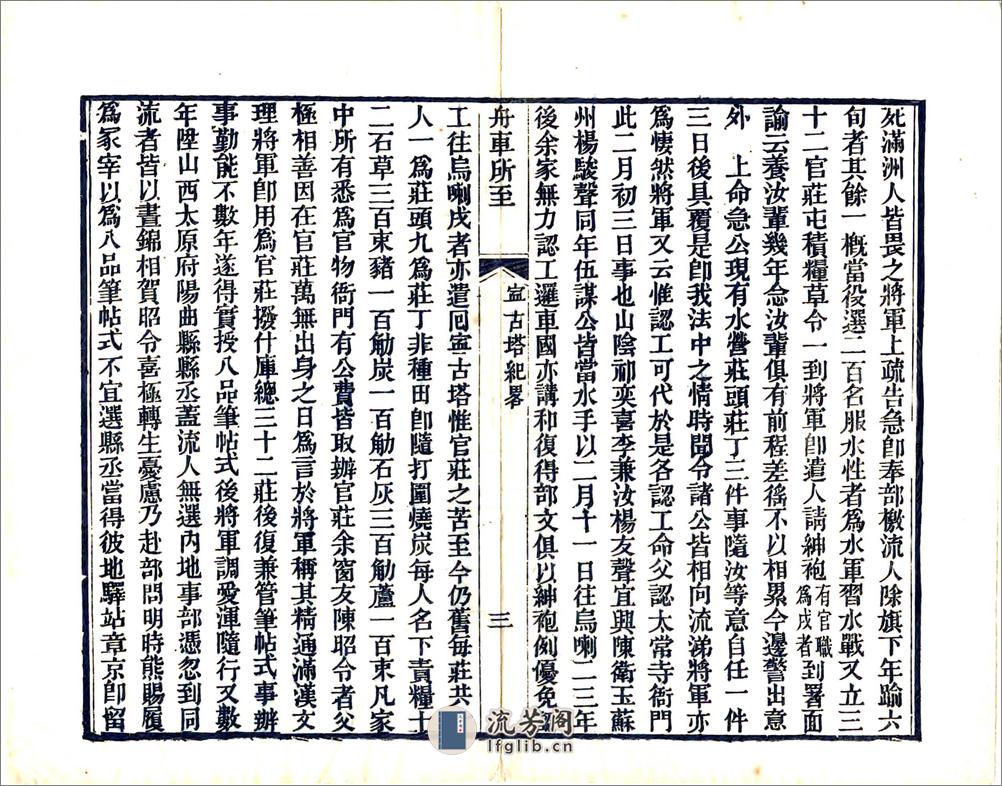 死滿洲人皆畏之將軍上疏告急卽奉部檄流人除旗下年踰六
旬者其餘一槪當役選二百名服水性者爲水軍習水戰又立三
十二官莊屯積糧草令一到將軍卽遣人請紳袍有官職爲戍者到署面
諭云養汝輩幾年念汝輩俱有前程差徭不以相累今邊警出意
外 上命急公現有水營莊頭莊丁三件事隨汝等意自任一件
三日後具覆是卽我法中之情時聞令諸公皆相向流涕將軍亦
爲悽然將軍又云惟認工可代於是各認工命父認太常寺衙門
此二月初三日事也山陰祁奕喜李兼汝楊友聲宜興陳衛玉蘇
州楊駿聲同年伍謀公皆當水手以二月十一日往烏喇二三年
後余家無力認工邏車國亦講和復得部文俱以紳袍例優免
舟車所至
寍古塔紀畧
三
工往烏喇戍者亦遣囘寍古塔惟官莊之苦至今仍舊每莊共十
人一爲莊頭九爲莊丁非種田卽隨打圍燒炭每人名下責糧十
二石草三百束豬一百觔炭一百觔石灰三百觔蘆一百束凡家
中所有悉爲官物衙門有公費皆取辦官莊余窗友陳昭令者父
極相善因在官莊萬無出身之日爲言於將軍稱其精通滿漢文
理將軍卽用爲官莊撥什庫總三十二莊後復兼管筆帖式事辦
事勤能不數年遂得實授八品筆帖式後將軍調愛渾隨行又數
年陞山西太原府陽曲縣縣丞蓋流人無選內地事部憑忽到同
流者皆以晝錦相賀昭令喜極轉生憂慮乃赴部問明時熊賜履
爲冢宰以爲八品筆帖式不宜選縣丞當得彼地驛站章京卽留
流芳阁
lfglib.cn